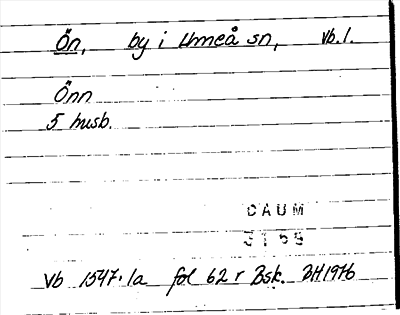 Ön, by i Umeå sn, Vb.l.
Önn
5 husb.
DAUM
3159
Vb 1547:1a fol 62 r Bsk. BH1976